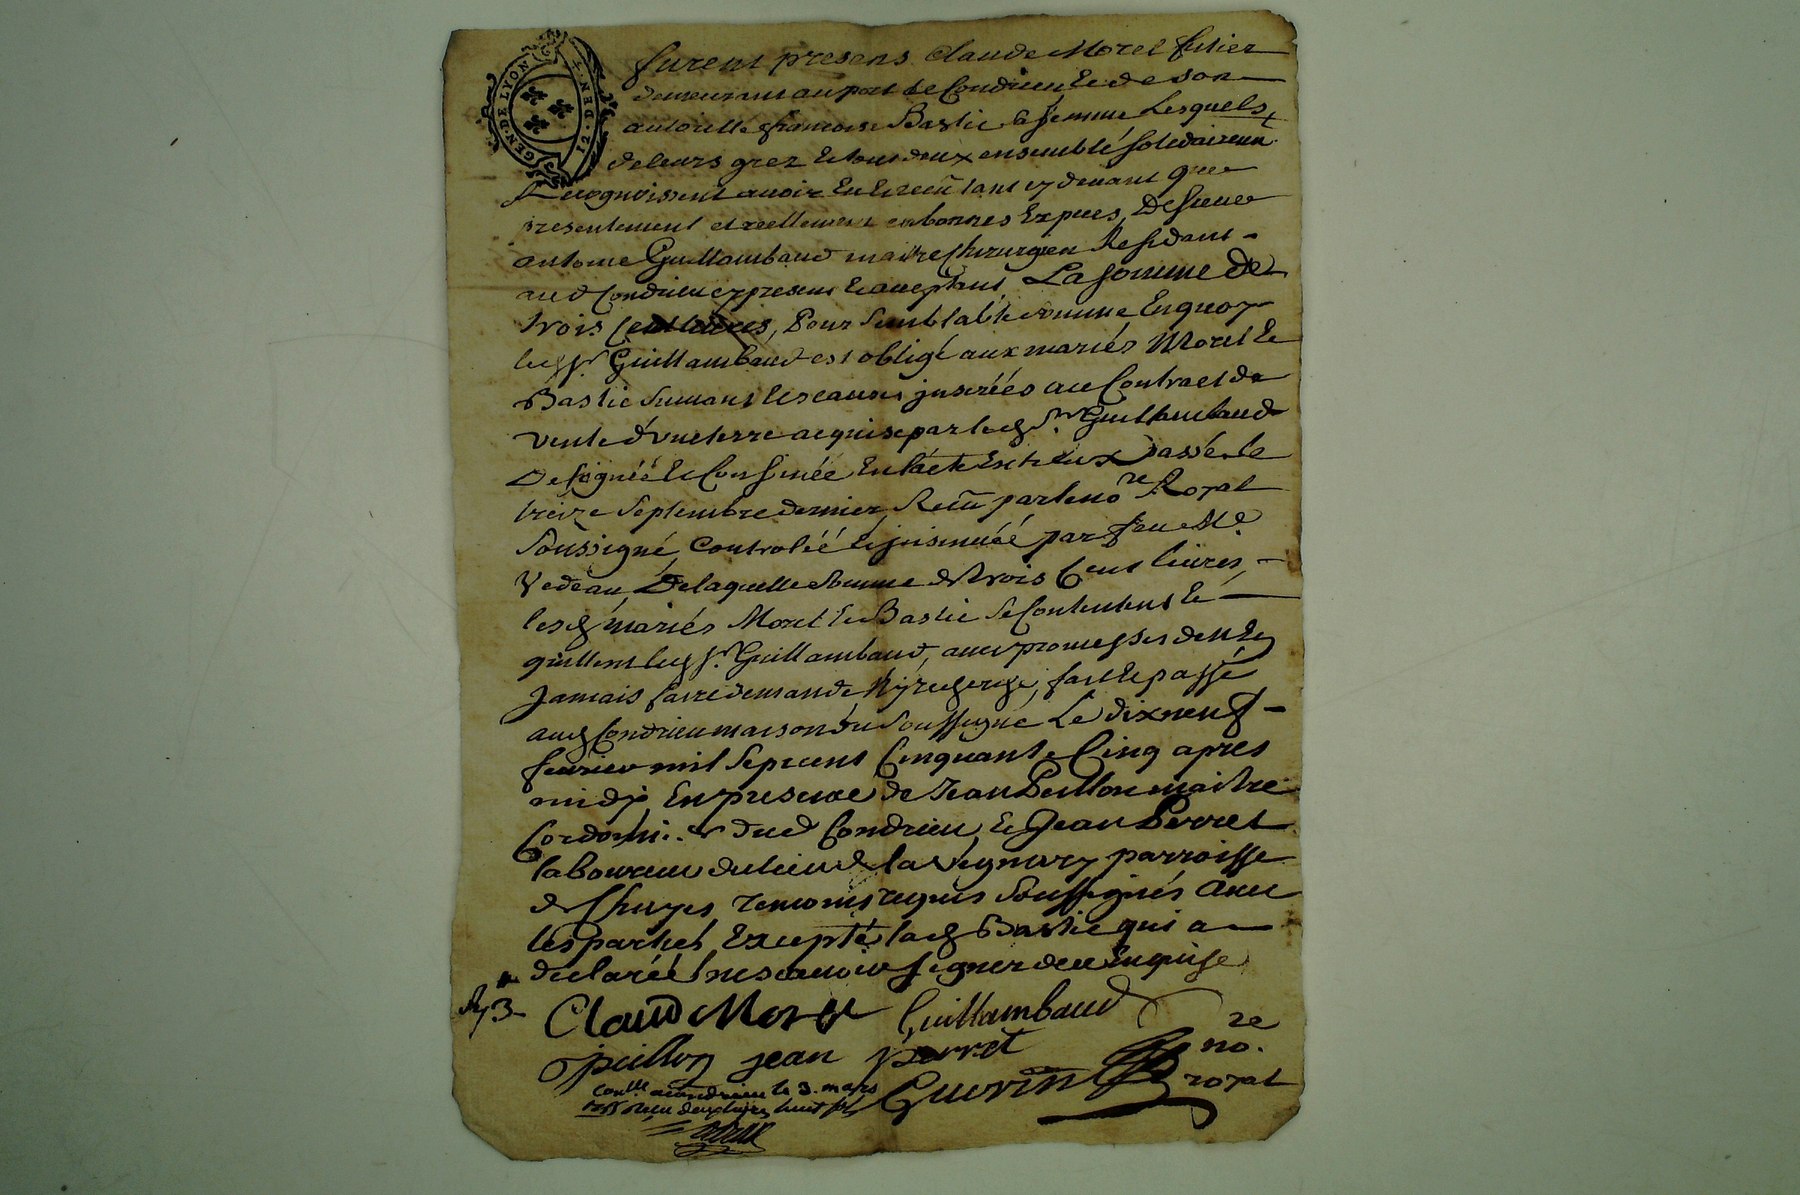 GEN·DE LYON
furent presens Claude Morel futier
demeurant au port de Condrieu & de son
autorité françoise Bastie sa femme Lesquels
de leurs grez & tous deux ensemble solidairem.
Recognoissent avoir Eu & receu tant cy devant que
presentement et reellement en bonnes Especes, De sieur
antoine Guillambaud maitre Chirurgien Residant
aud Condrieu cy present & acceptant La somme de
trois Cent livres, Pour semblable somme En quoy
led Sr. Guillambaud est obligé aux mariés Morel &
Bastie suivant les causes inserées au Contract de
vente d'une terre acquise par led Sr. Guillambaud
Designée & Confinée En l'acte Entr'eux passé le
treize septembre dernier, Receu par le nore Royal
soussigné, Controllé & insinué par feu Me.
Vedeau, De laquelle somme de trois Cent livres,
lesd mariés Morel & Bastie se Contentent &
quittent led Sr. Guillambaud, avec promesses de n'En
Jamais faire demande Ny recherche, fait & passé
aud Condrieu maison du soussigné Le dix neuf
fevrier mil sept cent Cinquante Cinq apres
midy En presence de Jean Peillon maitre
Cordonnier dud Condrieu, & Jean Perret
laboureur du lieu de la parroisse
de Chuyes temoins requis soussignés avec
les parties Excepté lad Bastie qui a
declaré ne scavoir signer de ce Enquise
R 3
Claud Morel Guillambaud
peillon jean perret
Guerin nore
royal
Conllé a Condrieu le 3. mars
1755 Receu huit sols